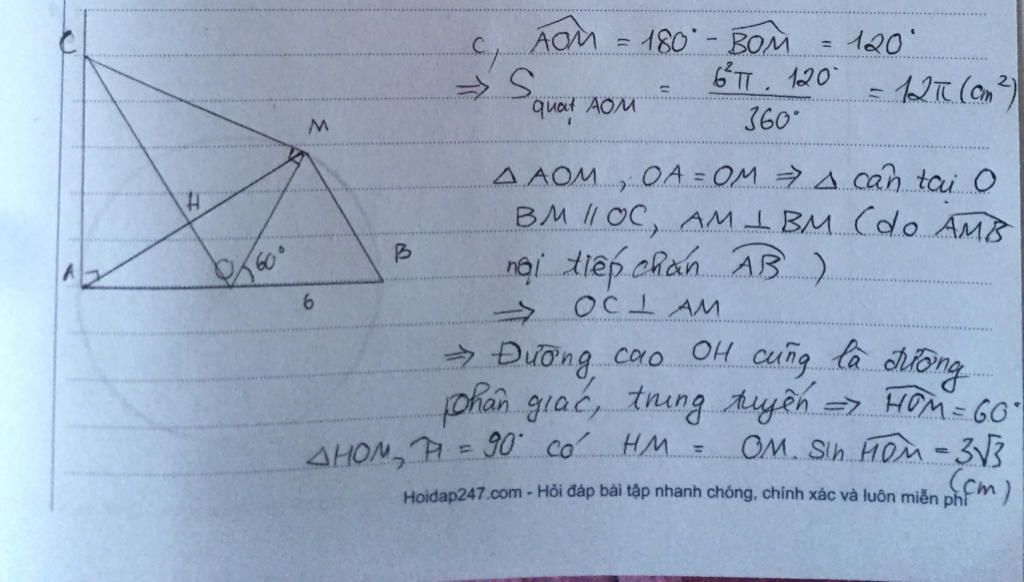 C
M
H
A
O
60°
B
6
c, AOM = 180° - BOM = 120°
=> S quạt AOM = 6²π . 120° / 360° = 12π (cm²)
Δ AOM , OA = OM => Δ cân tại O
BM // OC, AM ⊥ BM ( do AMB
nội tiếp chắn AB )
=> OC ⊥ AM
=> Đường cao OH cũng là đường
phân giác, trung tuyến => HOM = 60°
ΔHOM, H = 90° có HM = OM. sin HOM = 3√3
(cm)
Hoidap247.com - Hỏi đáp bài tập nhanh chóng, chính xác và luôn miễn phí